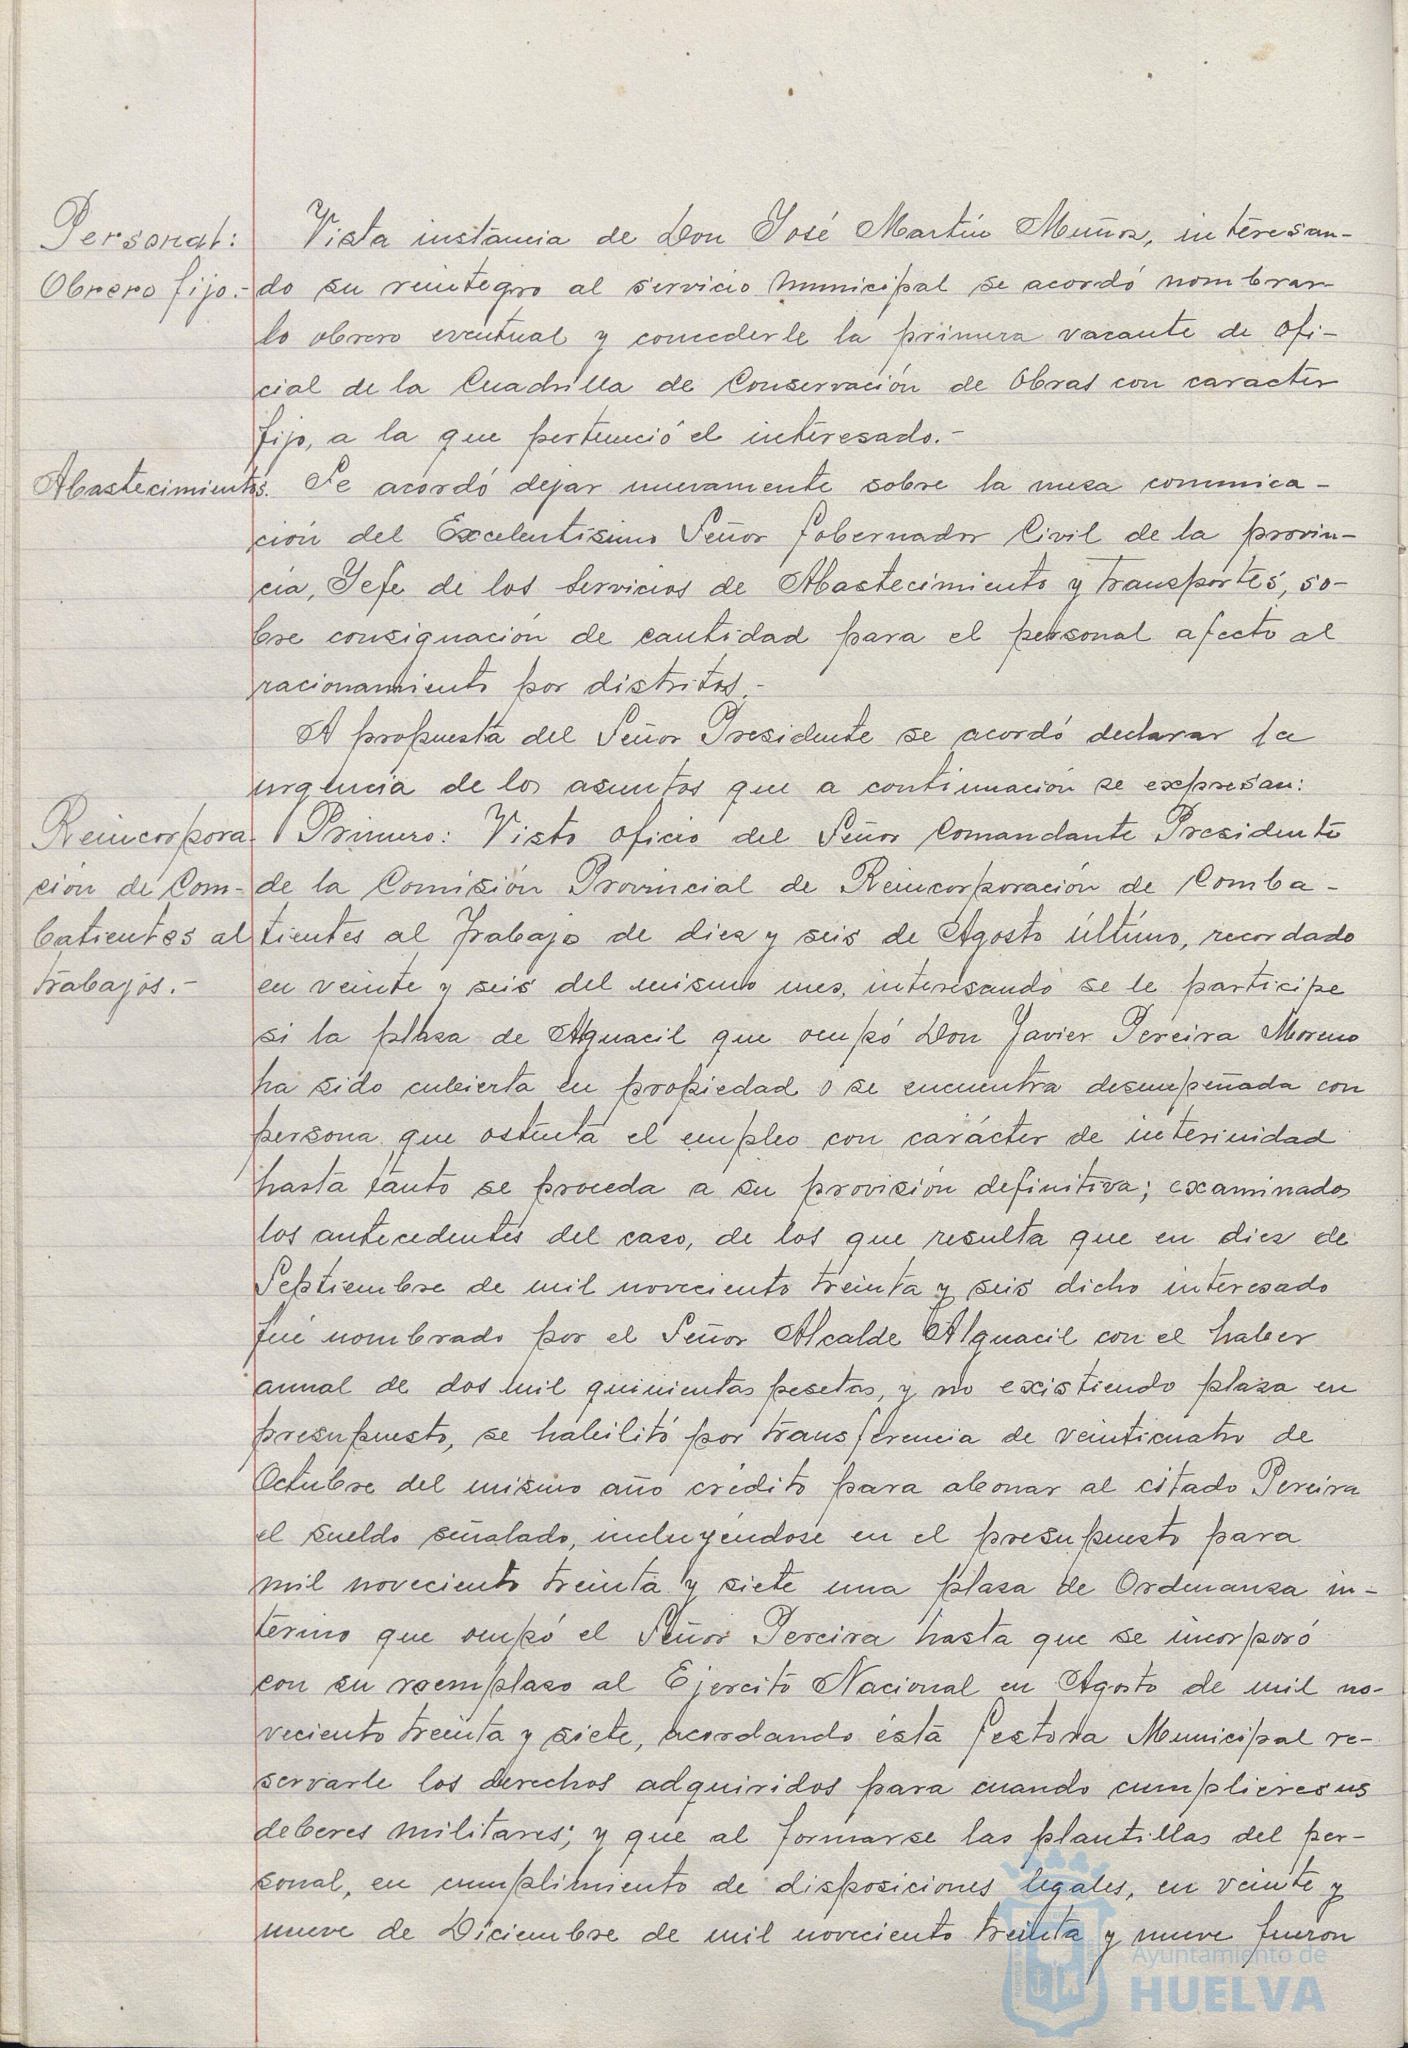 Personal:
Obrero fijo.-
Vista instancia de Don José Martín Muñoz, interesan-
do su reintegro al servicio municipal se acordó nombrar-
lo obrero eventual y concederle la primera vacante de Ofi-
cial de la Cuadrilla de Conservación de Obras con caracter
fijo, a la que perteneció el interesado.-
Abastecimientos.
Se acordó dejar nuevamente sobre la mesa comunica-
ción del Excelentísimo Señor Gobernador Civil de la provin-
cia, Jefe de los Servicios de Abastecimiento y Transportes, so-
bre consignación de cantidad para el personal afecto al
racionamiento por distritos.-
A propuesta del Señor Presidente se acordó declarar la
urgencia de los asuntos que a continuación se expresan:
Reincorpora-
ción de Com-
batientes al
trabajos.-
Primero: Visto oficio del Señor Comandante Presidente
de la Comisión Provincial de Reincorporación de Comba-
tientes al Trabajo de diez y seis de Agosto último, recordado
en veinte y seis del mismo mes, interesando se le participe
si la plaza de Alguacil que ocupó Don Javier Pereira Moreno
ha sido cubierta en propiedad o se encuentra desempeñada con
persona que ostenta el empleo con carácter de interinidad
hasta tanto se proceda a su provisión definitiva; examinados
los antecedentes del caso, de los que resulta que en diez de
Septiembre de mil noveciento treinta y seis dicho interesado
fué nombrado por el Señor Alcalde Alguacil con el haber
anual de dos mil quinientas pesetas, y no existiendo plaza en
presupuesto, se habilitó por transferencia de veinticuatro de
Octubre del mismo año crédito para abonar al citado Pereira
el sueldo señalado, incluyéndose en el presupuesto para
mil noveciento treinta y siete una plaza de Ordenanza in-
terino que ocupó el Señor Pereira hasta que se incorporó
con su reemplazo al Ejercito Nacional en Agosto de mil no-
veciento treinta y siete, acordando ésta Gestora Municipal re-
servarle los derechos adquiridos para cuando cumpliere sus
deberes militares; y que al formarse las plantillas del per-
sonal, en cumplimiento de disposiciones legales, en veinte y
nueve de Diciembre de mil noveciento treinta y nueve fueron
Ayuntamiento de
HUELVA